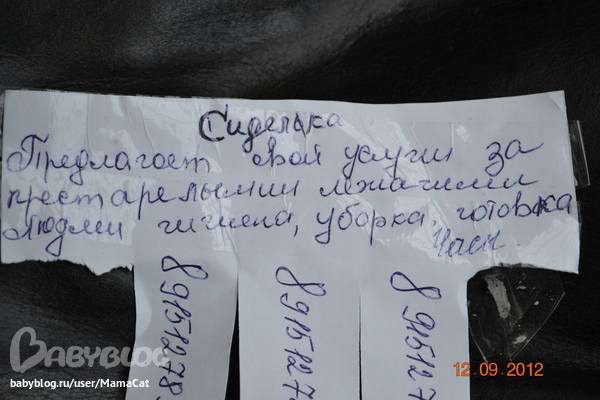 Сиделка
Предлагает свои услуги за
престарелыми лежачими
людми гигиена, уборка, готовка
8 9151278
8 9151127
8 915127
BABYBLOG
babyblog.ru/user/MamaCat
12.09.2012